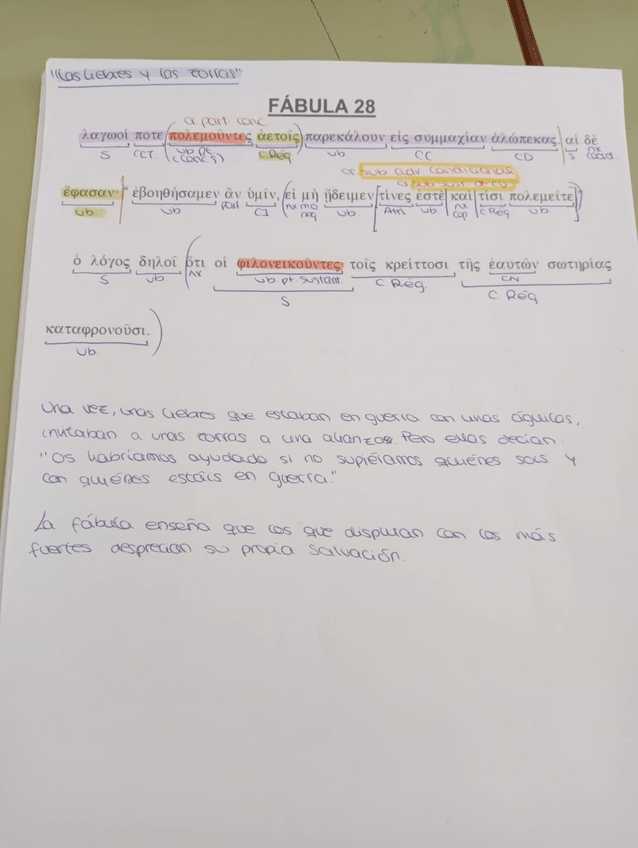 "Las liebres y las zorras"
FÁBULA 28
or part conc
λαγωοί ποτε πολεμοῦντες ἀετοῖς παρεκάλουν εἰς συμμαχίαν ἀλώπεκας. αἱ δὲ
S CCT. vb pt C.Rég. vb CC CD S nx
(conc S)
or sub adv. condicional
or
ἔφασαν· "ἐβοηθήσαμεν ἂν ὑμῖν, εἰ μὴ ᾔδειμεν τίνες ἐστὲ καὶ τίσι πολεμεῖτε"
vb. vb part CI nx mo vb Atri. vb. nx C.Rég vb
neg cop
ὁ λόγος δηλοῖ ὅτι οἱ φιλονεικοῦντες τοῖς κρείττοσι τῆς ἑαυτῶν σωτηρίας
S vb. nx vb. pt. sustant. C.Rég. CN
S C.Rég
καταφρονοῦσι.
vb
Una vez, unas liebres que estaban en guerra con unas águilas,
invitaban a unas zorras a una alianza. Pero ellas decían:
"Os habríamos ayudado si no supiéramos quiénes sois y
con quiénes estáis en guerra."
La fábula enseña que los que disputan con los más
fuertes desprecian su propia salvación.